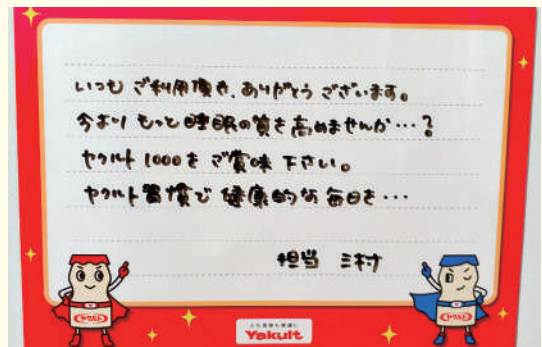 いつも ご利用頂き、ありがとう ございます。
今より もっと 睡眠の質を高めませんか…?
ヤクルト1000を ご賞味 下さい。
ヤクルト習慣で 健康的な 毎日を…
担当 三村
ヤクルト
ヤクルト
人も地球も健康に
Yakult